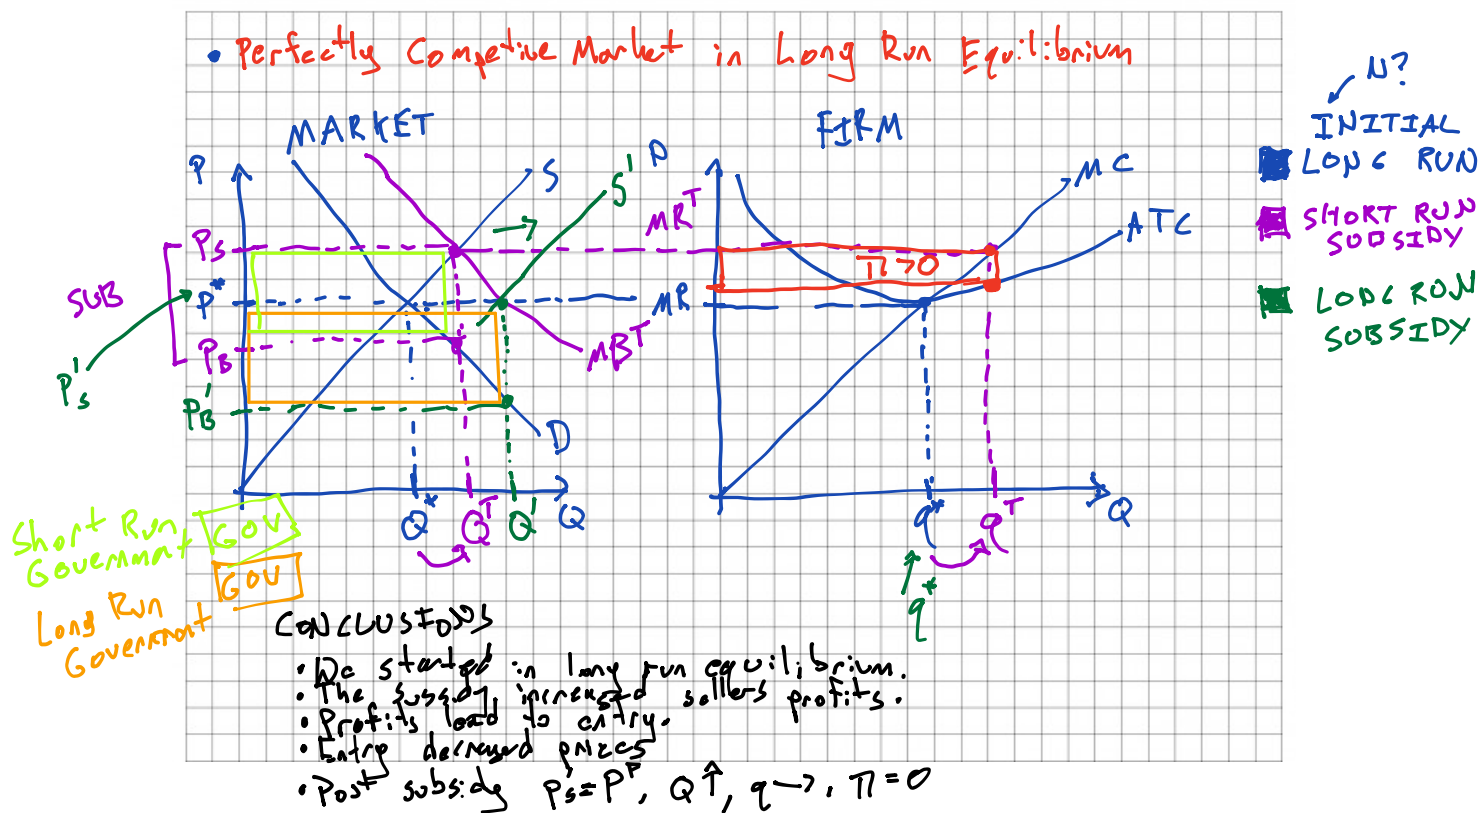 • Perfectly Competive Market in Long Run Equilibrium
N?
INITIAL
LONG RUN
SHORT RUN
SUBSIDY
LONG RUN
SUBSIDY
MARKET
FIRM
P
S
S'
P
MC
ATC
MR^T
P_S
P*
SUB
P_B
P'_S
P'_B
MR
π>0
MB^T
D
Q*
Q^T
Q'
Q
q*
q^T
Q
q*
Short Run
Government
GOV
Long Run
Government
GOV
CONCLUSIONS
• We started in long run equilibrium.
• The subsidy increased sellers profits.
• Profits lead to entry.
• Entry decreased prices
• Post subsidy P's = P*, Q↑, q→, π=0